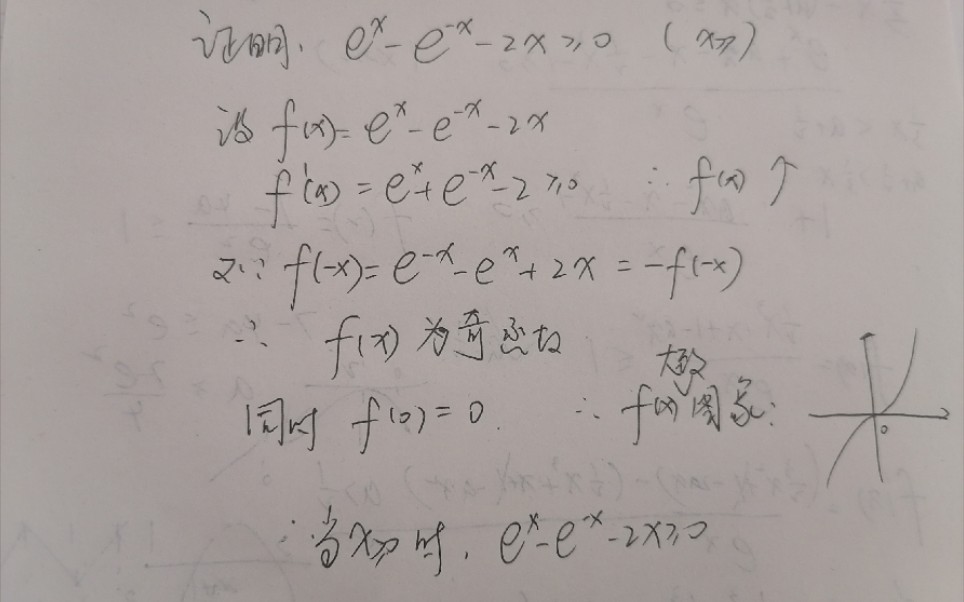 证明. eˣ - e⁻ˣ - 2x ≥ 0 (x≥)
设 f(x) = eˣ - e⁻ˣ - 2x
f'(x) = eˣ + e⁻ˣ - 2 ≥ 0 ∴ f(x) ↑
又∵ f(-x) = e⁻ˣ - eˣ + 2x = -f(-x)
∴ f(x) 为奇函数
大致
同时 f(0) = 0. ∴ f(x) 图象:
0
∴ 当 x≥ 时, eˣ - e⁻ˣ - 2x ≥ 0